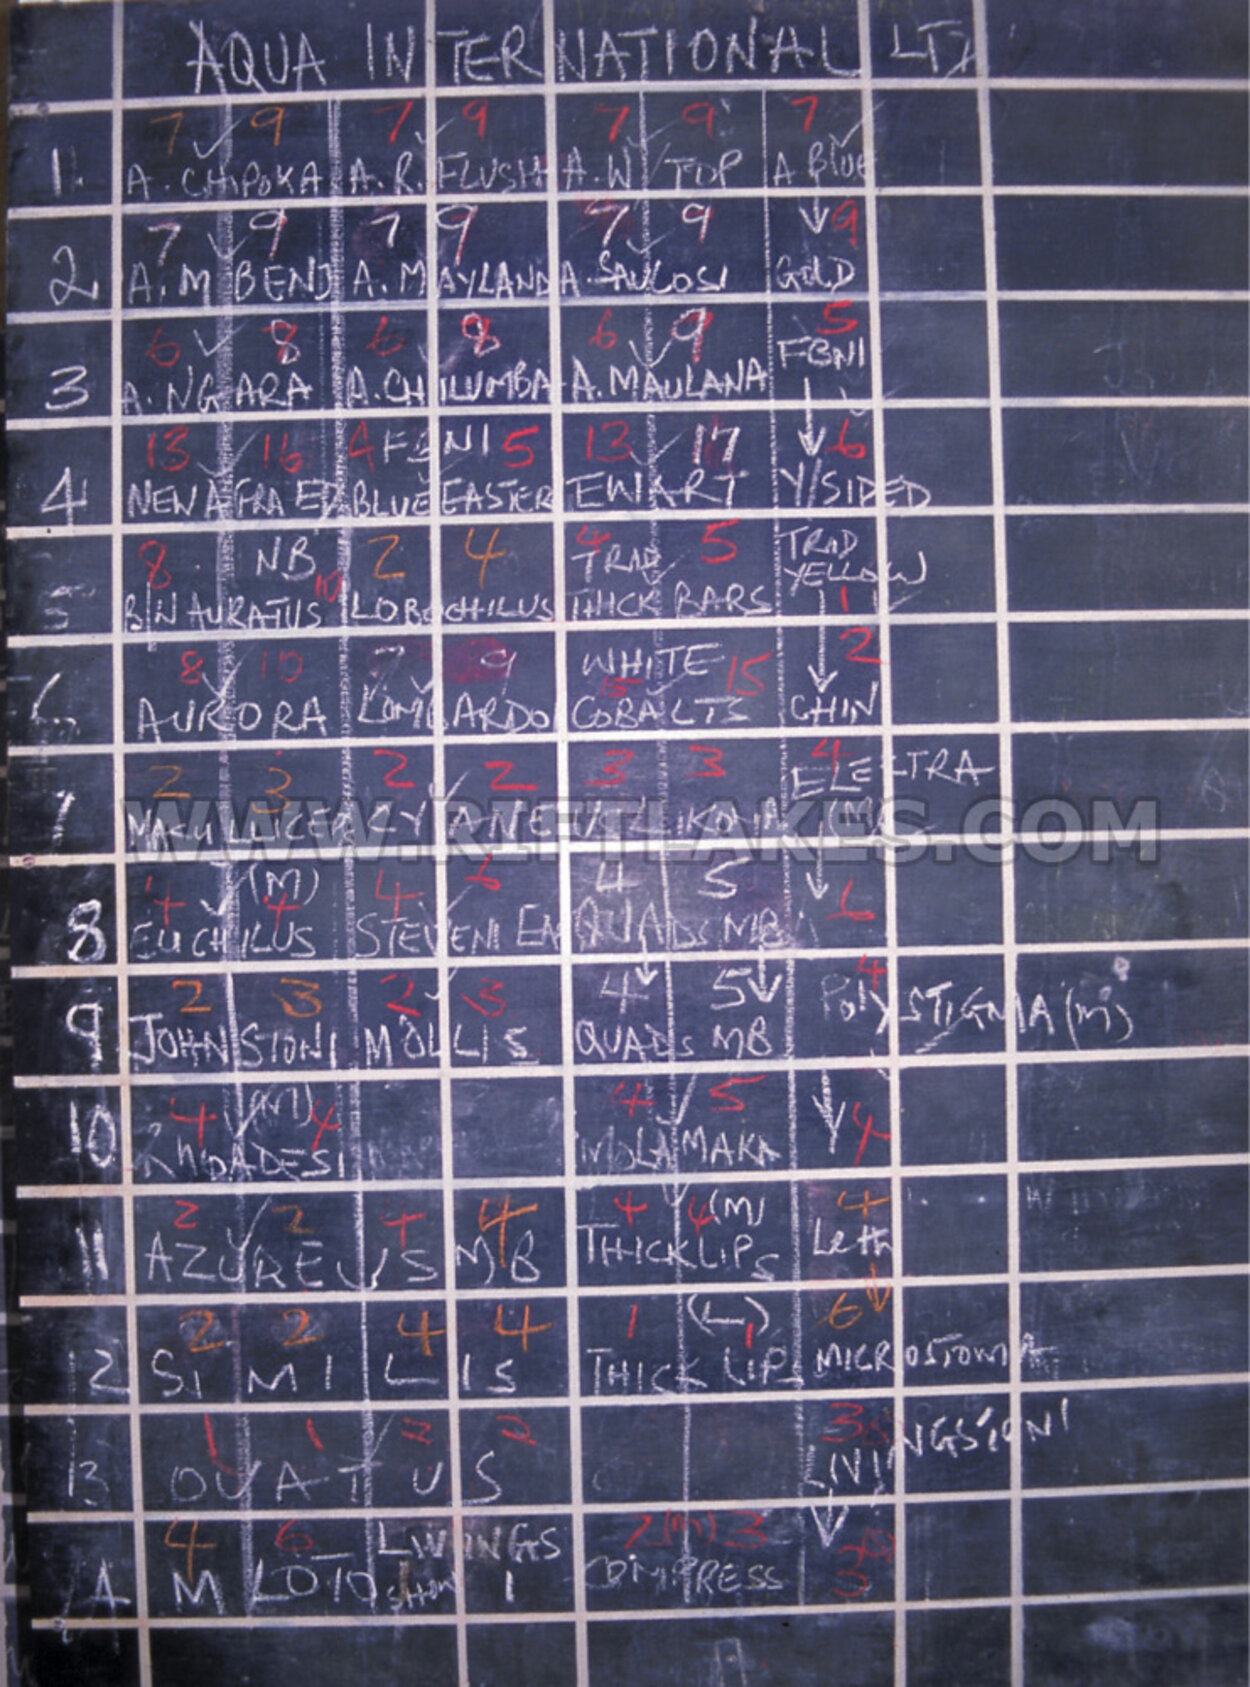 AQUA INTERNATIONAL LTD
7 9 7 9 7 9 7
1 A. CHIPOKA A. R. FLUSH A. W/TOP A BLUE
7 9 7 9 7 9 9
2 A. M BENJ A. MAYLAND A. SAULOSI GOLD
6 8 6 8 6 9 5
3 A. NGARA A. CHILUMBA A. MAULANA FBNI
13 16 4 FBNI 5 13 17 6
4 NEW AFRA ED BLUE EASTER EWART Y/SIDED
8 NB 10 2 4 4 TRAD 5 TRAD YELLOW
5 BIN AURATUS LOBOCHILUS THICK BARS 1
8 10 7 9 WHITE 15 15 2
6 AURORA LOMBARDO COBALTS CHIN
2 3 2 2 3 3 4 ELECTRA
7 CYANE LIKOMA
4 (M) 4 4 6 4 5 6
8 EUCHILUS STEVENI QUADS MB
2 3 2 3 4 5 4
9 JOHNSTONI MOLLIS QUADS MB POLYSTIGMA (M)
4 (M) 4 4 5 4
10 RHOADESI MOLAMAKA
2 2 4 4 4 4 (M) 4
11 AZUREUS MB THICKLIPS Leth
2 2 4 4 1 (L) 1 6
12 SIMILIS THICK LIPS MICROSTOMA
1 1 2 2 3
13 OVATUS LIVINGSTONI
4 6 LIVINGS 2 (M) 3
M LOTO I COMPRESS 3
WWW.RIFTLAKES.COM